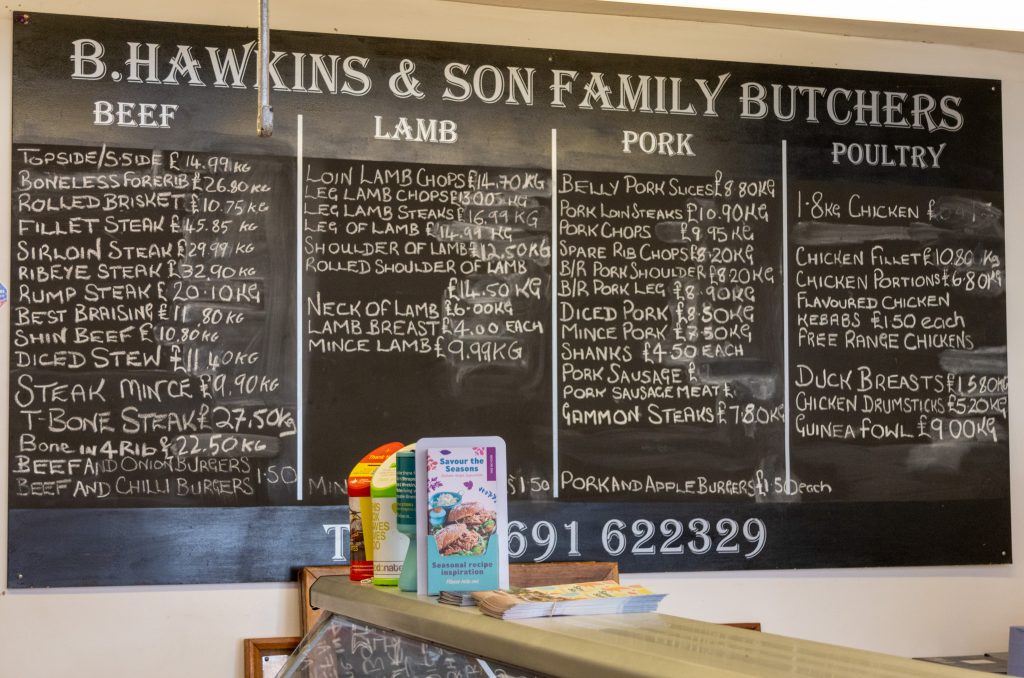 B.HAWKINS & SON FAMILY BUTCHERS
BEEF
TOPSIDE/S.SIDE £14.99 KG
BONELESS FORERIB £26.80 KG
ROLLED BRISKET £10.75 KG
FILLET STEAK £45.85 KG
SIRLOIN STEAK £29.99 KG
RIBEYE STEAK £32.90 KG
RUMP STEAK £20.10KG
BEST BRAISING £11.80KG
SHIN BEEF £10.80KG
DICED STEW £11.40KG
STEAK MINCE £9.90KG
T-BONE STEAK £27.50KG
BONE IN 4 RIB £22.50KG
BEEF AND ONION BURGERS
BEEF AND CHILLI BURGERS 1.50
LAMB
LOIN LAMB CHOPS £14.70KG
LEG LAMB CHOPS £13.00 KG
LEG LAMB STEAKS £16.99 KG
LEG OF LAMB £14.99 KG
SHOULDER OF LAMB £12.50KG
ROLLED SHOULDER OF LAMB
£14.50KG
NECK OF LAMB £6.00KG
LAMB BREAST £4.00 EACH
MINCE LAMB £9.99KG
£1.50
PORK
BELLY PORK SLICES £8.80KG
PORK LOIN STEAKS £10.90KG
PORK CHOPS £9.95KG
SPARE RIB CHOPS £8.20KG
B/R PORK SHOULDER £8.20KG
B/R PORK LEG £8.90KG
DICED PORK £8.50KG
MINCE PORK £7.50KG
SHANKS £4.50 EACH
PORK SAUSAGE £
PORK SAUSAGE MEAT £
GAMMON STEAKS £7.80KG
PORK AND APPLE BURGERS £1.50 each
POULTRY
1.8KG CHICKEN £
CHICKEN FILLET £10.80 Kg
CHICKEN PORTIONS £6.80KG
FLAVOURED CHICKEN
KEBABS £1.50 each
FREE RANGE CHICKENS
DUCK BREASTS £15.80KG
CHICKEN DRUMSTICKS £5.20KG
GUINEA FOWL £9.00KG
691 622329
Savour the
Seasons
Seasonal recipe
inspiration
Please take one